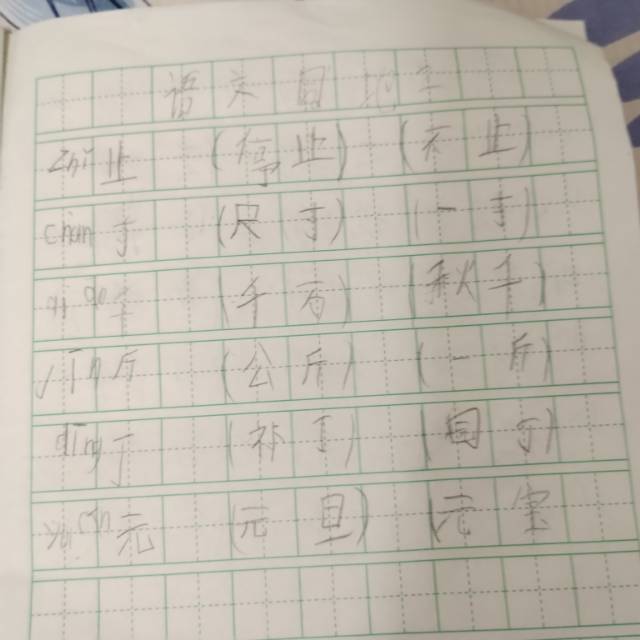 语文园
zhǐ 止 (停止) (不止)
寸 (尺寸) (一寸)
千 (千百) (秋千)
jīn 斤 (公斤) (一斤)
dīng 丁 (补丁) (园丁)
yuán 元 (元旦) (元宝)